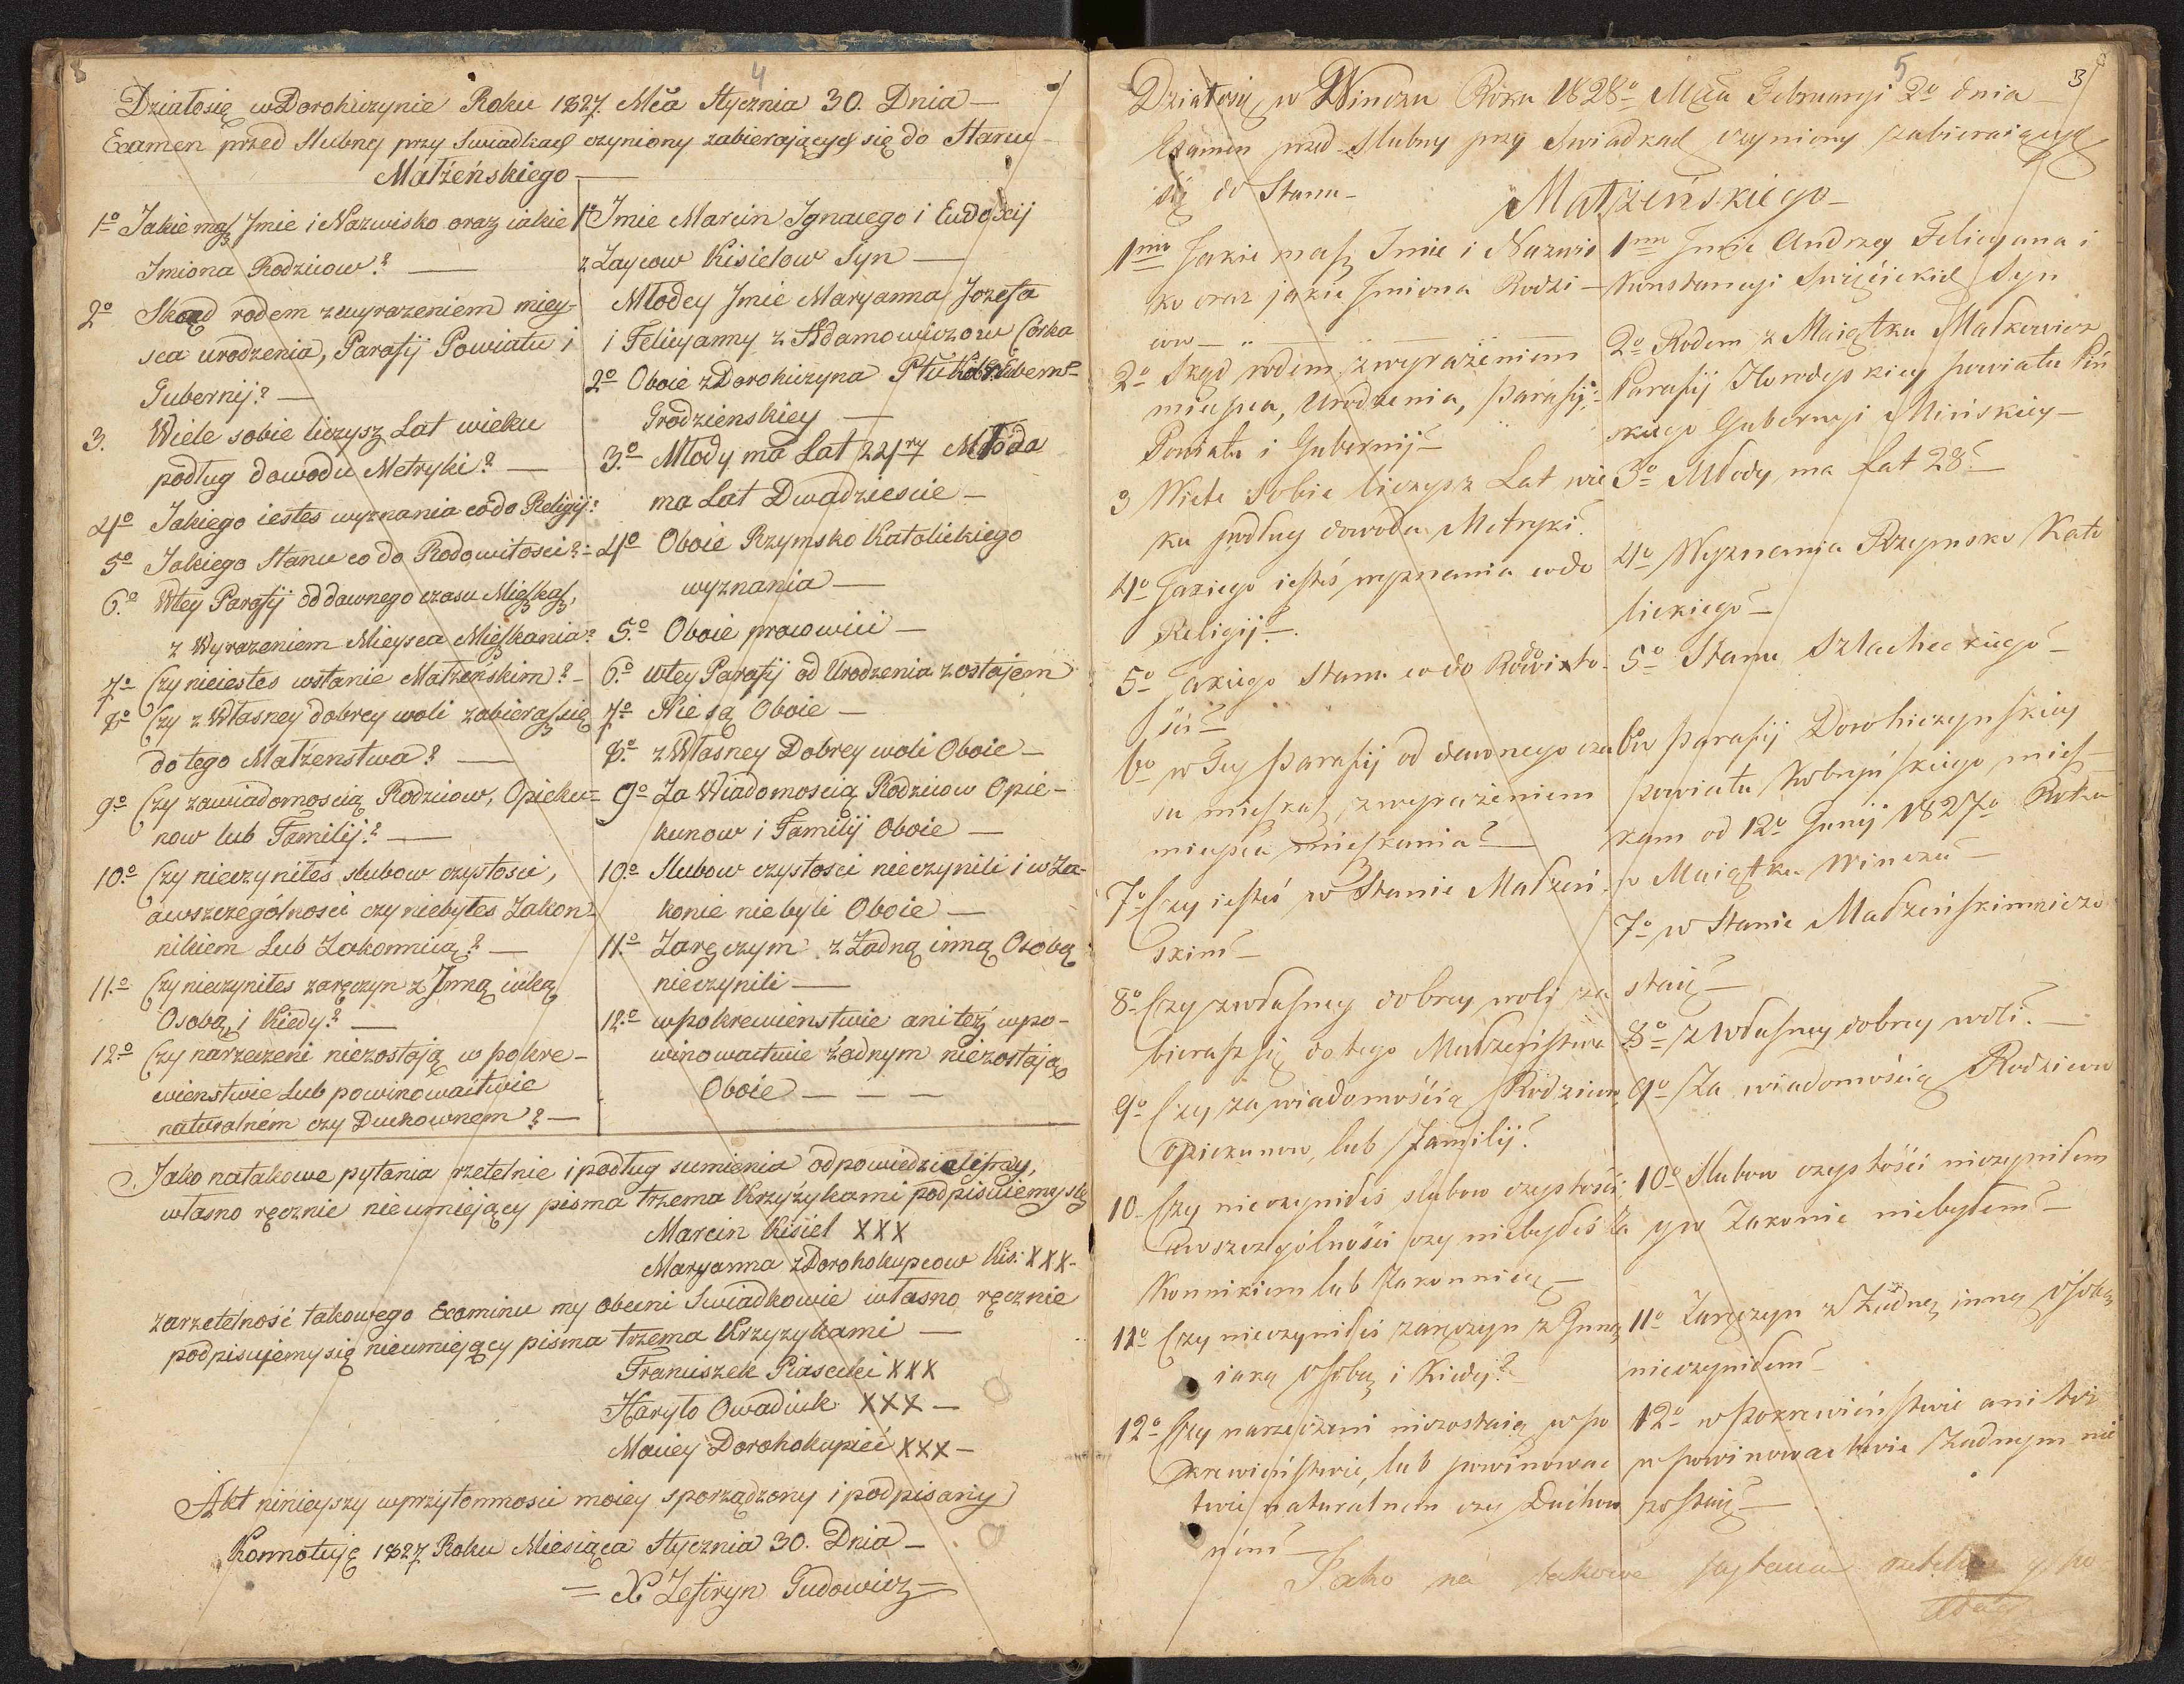 8
4
Działosię w Dorohiczynie Roku 1827. Mca Stycznia 30. Dnia —
Examen przed Slubny przy Swiadkach czyniony zabierających się do Stanu
Małżeńskiego —
1o Jakie masz Jmie i Nazwisko oraz iakie
Jmiona Rodzicow? —
2o Skąd rodem z wyrazeniem miey-
sca urodzenia, Parafij Powiatu i
Gubernij? —
3. Wiele sobie liczysz Lat wieku
podług dowodu Metryki? —
4o Jakiego iestes wyznania co do Religij?
5o Jakiego Stanu co do Rodowitosci? -
6.o Wtey Parafij od dawnego czasu Mieszkasz,
z Wyrazeniem Mieysca Mieszkania?
7o Czy nieiestes wstanie Małżeńskim? -
8o Czy z Własney dobrey woli zabierasz się
do tego Małżenstwa? —
9o Czy zawiadomoscią Rodzicow, Opieku=
now lub Familij? —
10.o Czy nieczyniłes slubow czystosci,
a wszczególnosci czy niebyłes Zakon-
nikiem Lub Zakonnicą? —
11.o Czy nieczyniłes zaręczyn z Jnną iaką
Osobą i Kiedy? —
12o Czy narzeczeni niezostają w pokre-
wienstwie Lub powinowactwie
naturalném czy Duchownem? —
1o Jmie Marcin Jgnacego i Eudoxij
z Zaycow Kisielow Syn —
Młodey Jmie Maryanna Jozefa
i Felicyanny z Adamowiczow Corka
2o Oboie z Dorohiczyna Ptu Kobr: Gubern:
Grodzienskiey —
3.o Młody ma Lat 24ry Młoda
ma Lat Dwadziescie —
4o Oboie Rzymsko Katolickiego
wyznania —
5.o Oboie pracowici —
6.o wtey Parafij od Urodzenia zostajem
7.o Nie są Oboie —
8.o z Własney Dobrey woli Oboie —
9o Za Wiadomoscią Rodzicow Opie-
kunow i Familij Oboie —
10.o Slubow czystosci nieczynili i w Za-
konie niebyli Oboie —
11.o Zaręczyn z Żadną inną Osobą
nieczynili —
12.o wpokrewienstwie ani też wpo-
winowactwie żadnym niezostają
Oboie — — —
Jako natakowe pytania rzetelnie i podług sumienia odpowiedzielismy,
własno ręcznie nieumiejący pisma trzema Krzyżykami podpisuiemy się
Marcin Kisiel XXX
Maryanna z Dorohokupcow Kis: XXX -
zarzetelność takowego Examinu my obecni Swiadkowie własno ręcznie
podpisujemy się nieumiejący pisma trzema Krzyzykami —
Franciszek Piasecki XXX
Haryło Owadiuk XXX —
Maciey Dorohokupiec XXX —
Akt ninieyszy wprzytomnosci moiey sporządzony i podpisany
Konnotuję 1827 Roku Miesiąca Stycznia 30. Dnia —
= X Zefiryn Gudowicz =
5
3
Działosię w Winczu Roku 1828o Mca Februaryi 2o dnia —
Examen przed Slubny przy Swiadkach czyniony zabieraiących
się do Stanu —
Małżeńskiego —
1mo Jakie masz Imie i Nazwis
ko oraz jakie Jmiona Rodzi —
ców —
2o Skąd rodem z wyrażeniem
mieysca, Urodzenia, Parafij
Powiatu i Gubernij —
3 Wiele Sobie liczysz Lat wie
ku podług dowodu Metryki?
4o Jakiego iesteś wyznania codo
Religij? —
5o Jakiego Stanu co do Rodowito-
ści —
6o w Tey Parafij od dawnego cza
su mieszkasz, z wyrażeniem
mieysca mieszkania? —
7o Czy iesteś w Stanie Małżeń-
skim —
8o Czy zwłasney dobrey woli za
bierasz się do tego Małżeństwa
9o Czy za wiadomością Rodziców,
opiekunow, lub Familij?
10 Czy nieczyniłeś slubow czystości,
a wszczególności czy niebyłeś Za
konnikiem lub Zakonnicą —
11o Czy nieczyniłeś zaręczyn z Jnną
iaką osobą i Kiedy?
12o Czy narzeczeni niezostaią w po
krewieństwie, lub powinowac
twie naturalnem czy Duchow
ném —
1mo Jmie Andrzey Felicyana i
Konstancyi Święcickich Syn
2o Rodem z Maiątku Małkowicz
Parafij Horodyskiey Powiatu Piń
skiego Gubernyi Mińskiey —
3o Młody ma Lat 28. —
4o Wyznania Rzymsko Kato
lickiego —
5o Stanu Szlacheckiego —
6o w Parafij Dorohiczynskiey
powiatu Kobryńskiego miesz
kam od 12o Junij 1827o Roku
w Maiątku Winczu —
7o w Stanie Małżeńskim niezo
staię —
8o z Własney dobrey woli. —
9o Za wiadomością Rodziców
10o Slubow czystości nieczyniłem
y w Zakonie niebyłem —
11o Zaręczyn z Żadną inną osobą
nieczyniłem —
12o w Pokrewieństwie ani też
w powinowactwie Żadnym nie
zostaię —
Jako na takowe pytania rzetelnie y po